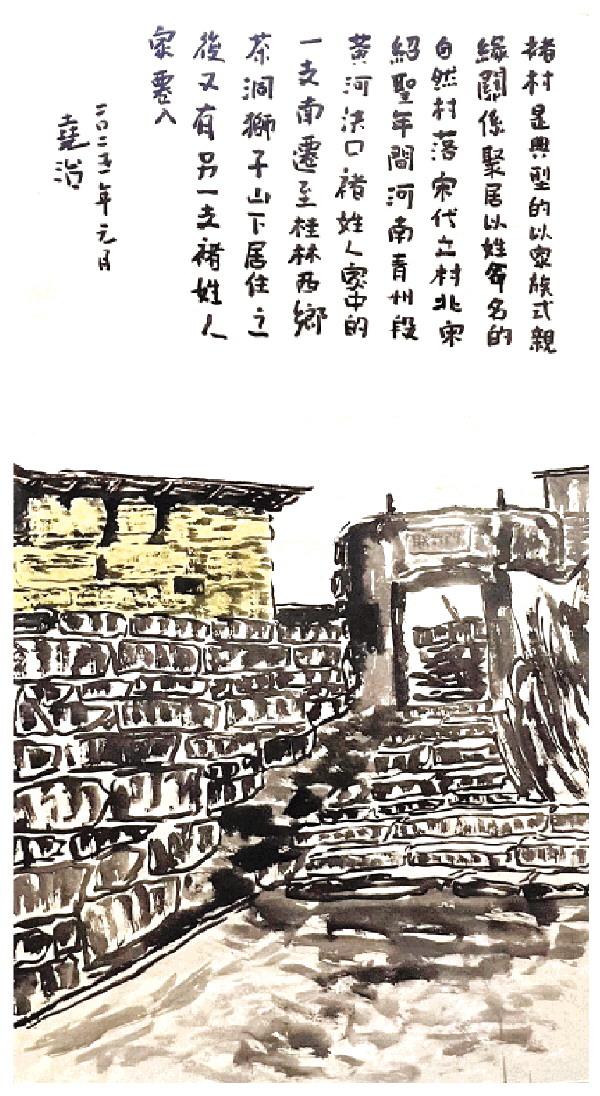 褚村是典型的以家族式親
緣關係聚居以姓命名的
自然村落宋代立村北宋
紹聖年間河南青州段
黄河決口褚姓人家中的
一支南遷至桂林西鄉
茶洞獅子山下居住之
後又有另一支褚姓人
家遷入
二〇二五年元月
堯治